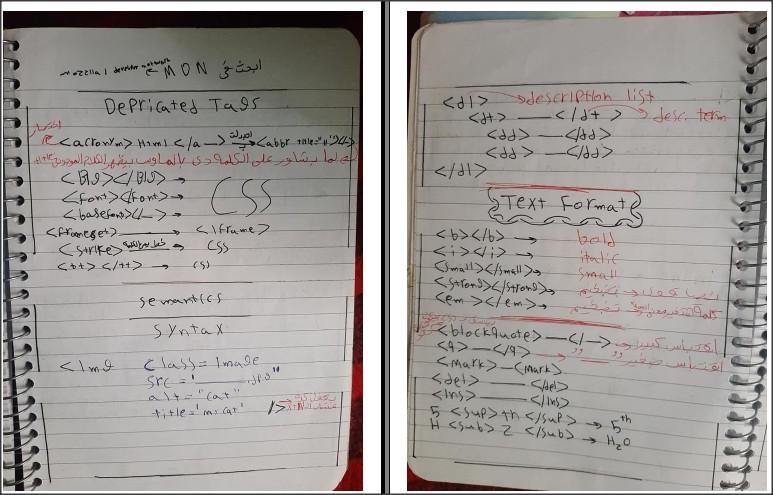 ابحث في MDN
mozzila developer network
Depricated Tags
اختصار
<acronym> Html </a —> <abbr title=" "></—>
لما يشاور على الكلمة دي بالماوس يظهر الكلام الموجود في title
<Big></Big> →
<font></font> →
CSS
<basefont></—> →
<frameset> —— <iframe>
<strike> → CSS
<tt> </tt> → CSS
semantics
syntax
<img class= image
src = ' .jpg"
alt = "cat"
title = 'm: cat' />
<dl> → description list
<dt> —— </dt> → desc. term
<dd> —— </dd>
<dd> —— </dd>
</dl>
Text Format
<b></b> → bold
<i></i> → italic
<small></small> → small
<strong></strong> →
<em></em> →
<blockquote> — </—> → اقتباس كبير
<q> — </q> → اقتباس صغير " — "
<mark> — <mark>
<del> —— </del>
<ins> —— </ins>
5 <sup> th </sup> → 5th
H <sub> 2 </sub> → H2O